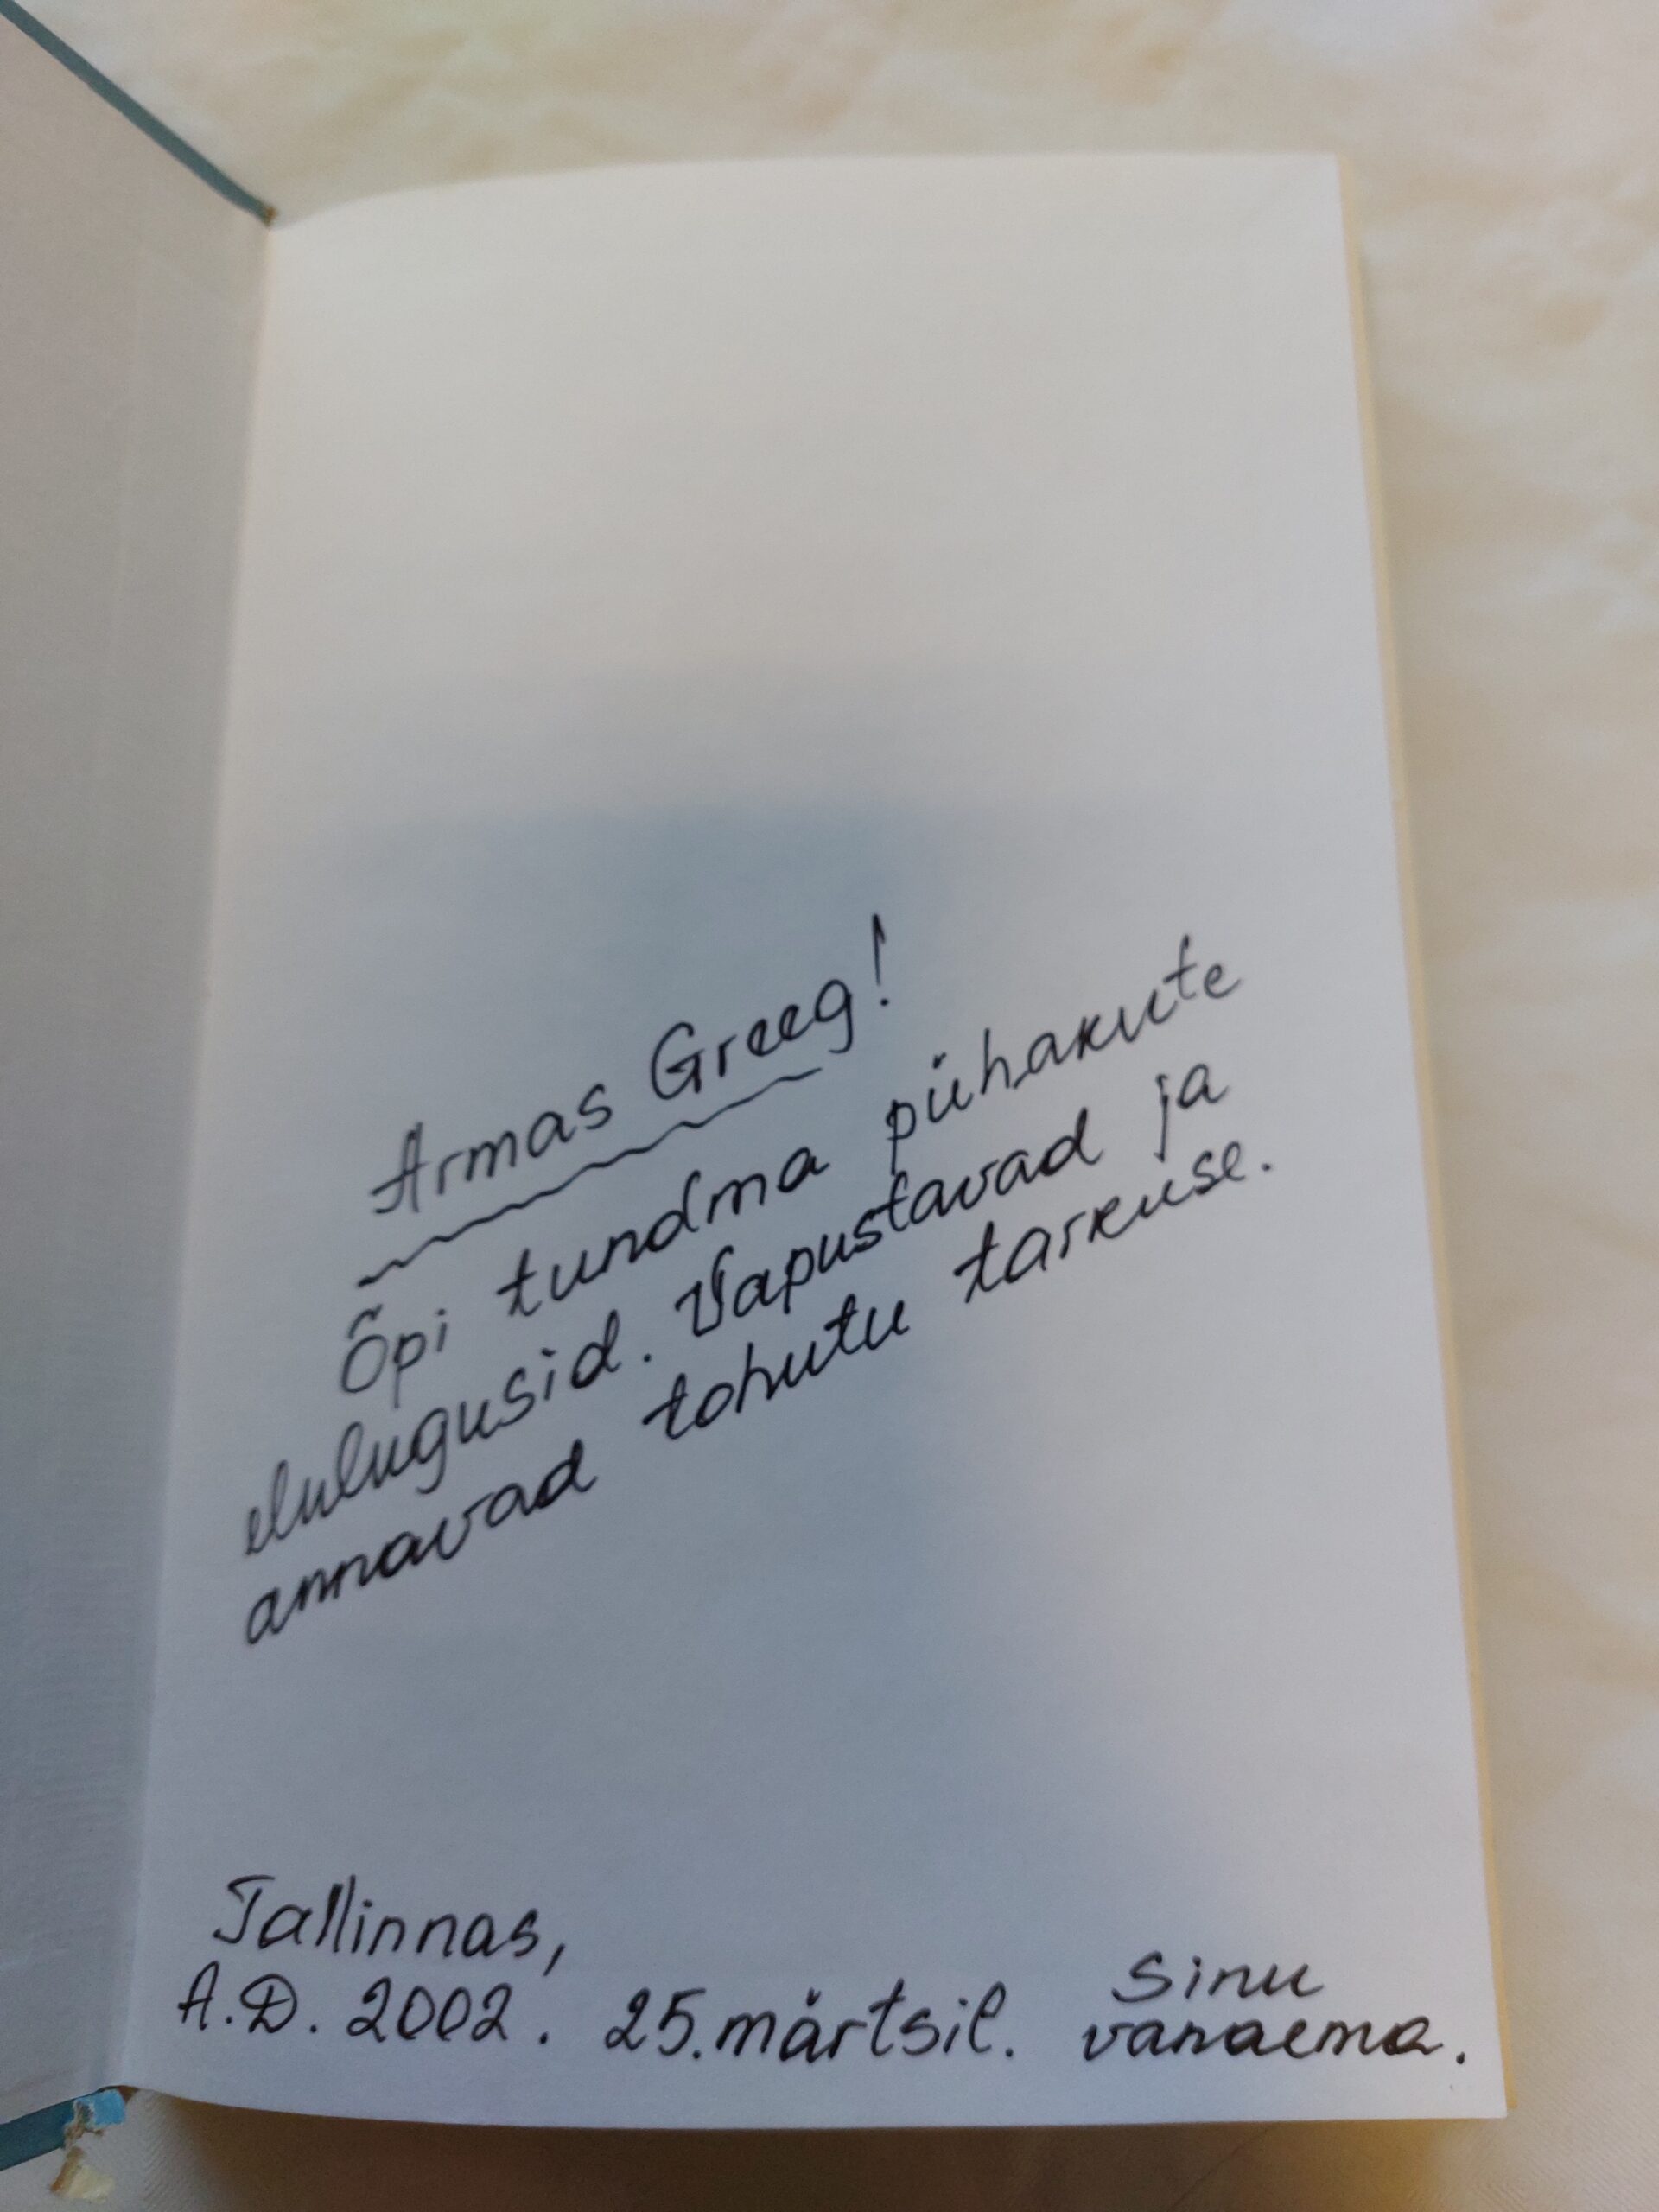 Armas Greeg!
Õpi tundma pühakute
elulugusid. Vapustavad ja
annavad tohutu tarkuse.
Tallinnas,
A.D. 2002. 25. märtsil.
Sinu
vanaema.